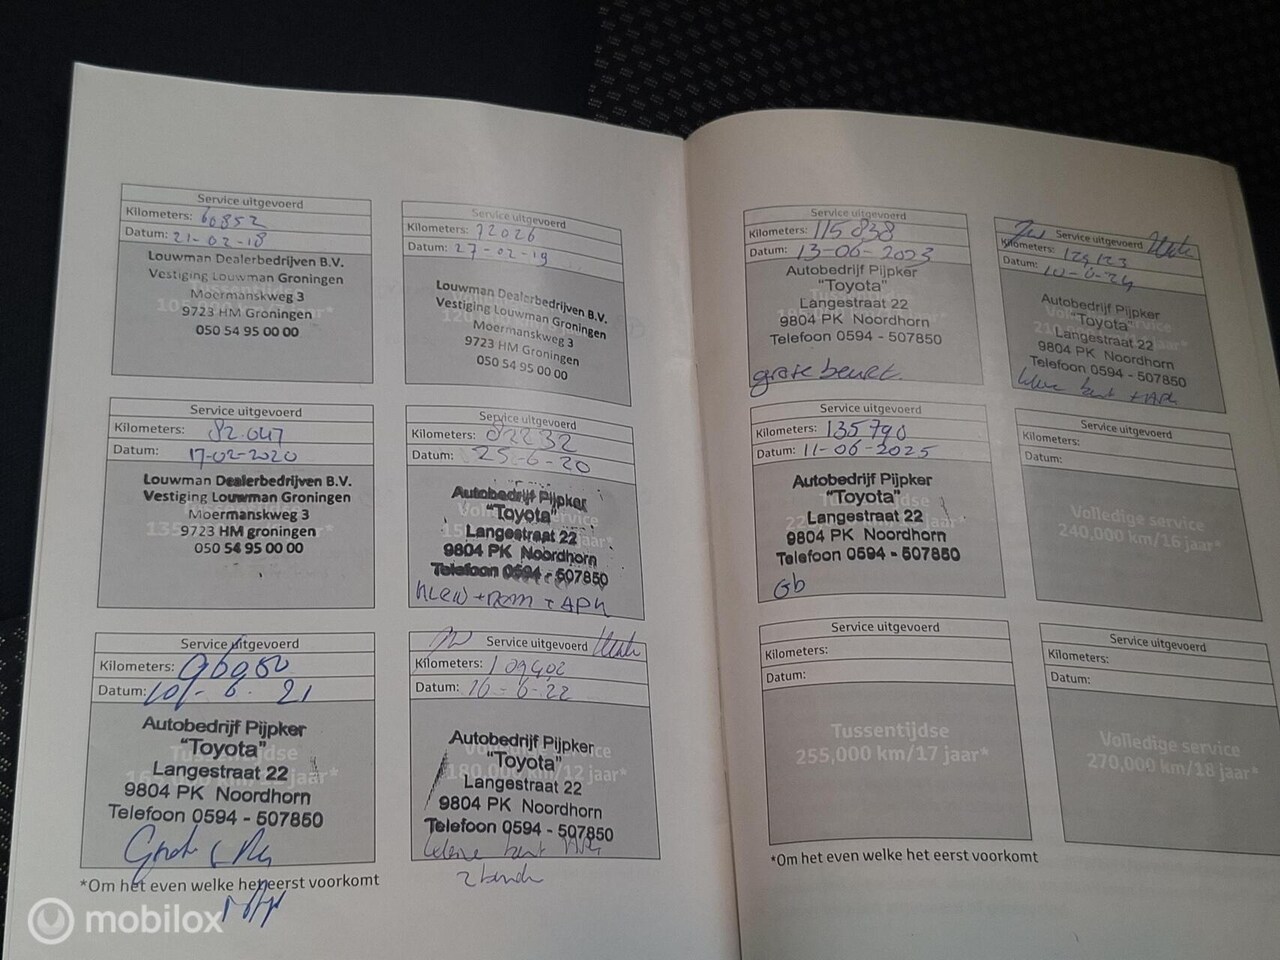 Service uitgevoerd
Kilometers: 60852
Datum: 21-02-18
Louwman Dealerbedrijven B.V.
Vestiging Louwman Groningen
Moermanskweg 3
9723 HM Groningen
050 54 95 00 00
Tussentijdse
Service uitgevoerd
Kilometers: 72026
Datum: 27-02-19
Louwman Dealerbedrijven B.V.
Vestiging Louwman Groningen
Moermanskweg 3
9723 HM Groningen
050 54 95 00 00
Service uitgevoerd
Kilometers: 82.047
Datum: 17-02-2020
Louwman Dealerbedrijven B.V.
Vestiging Louwman Groningen
Moermanskweg 3
9723 HM groningen
050 54 95 00 00
Service uitgevoerd
Kilometers:
Datum: 25-6-20
Autobedrijf Pijpker
"Toyota"
Langestraat 22
9804 PK Noordhorn
Telefoon 0594 - 507850
+ APK
Service uitgevoerd
Kilometers:
Datum: 10-6-21
Autobedrijf Pijpker
"Toyota"
Langestraat 22
9804 PK Noordhorn
Telefoon 0594 - 507850
Tussentijdse
Service uitgevoerd
Kilometers: 109402
Datum: 16-6-22
Autobedrijf Pijpker
"Toyota"
Langestraat 22
9804 PK Noordhorn
Telefoon 0594 - 507850
180,000 km/12 jaar*
kleine beurt APK
*Om het even welke het eerst voorkomt
Service uitgevoerd
Kilometers: 115838
Datum: 13-06-2023
Autobedrijf Pijpker
"Toyota"
Langestraat 22
9804 PK Noordhorn
Telefoon 0594 - 507850
grote beurt.
Service uitgevoerd
Kilometers: 129123
Datum: 10-6-24
Autobedrijf Pijpker
"Toyota"
Langestraat 22
9804 PK Noordhorn
Telefoon 0594 - 507850
kleine beurt + APK
Service uitgevoerd
Kilometers: 135790
Datum: 11-06-2025
Autobedrijf Pijpker
"Toyota"
Langestraat 22
9804 PK Noordhorn
Telefoon 0594 - 507850
Gb
Service uitgevoerd
Kilometers:
Datum:
Volledige service
240,000 km/16 jaar*
Service uitgevoerd
Kilometers:
Datum:
Tussentijdse
255,000 km/17 jaar*
Service uitgevoerd
Kilometers:
Datum:
Volledige service
270,000 km/18 jaar*
*Om het even welke het eerst voorkomt
mobilox